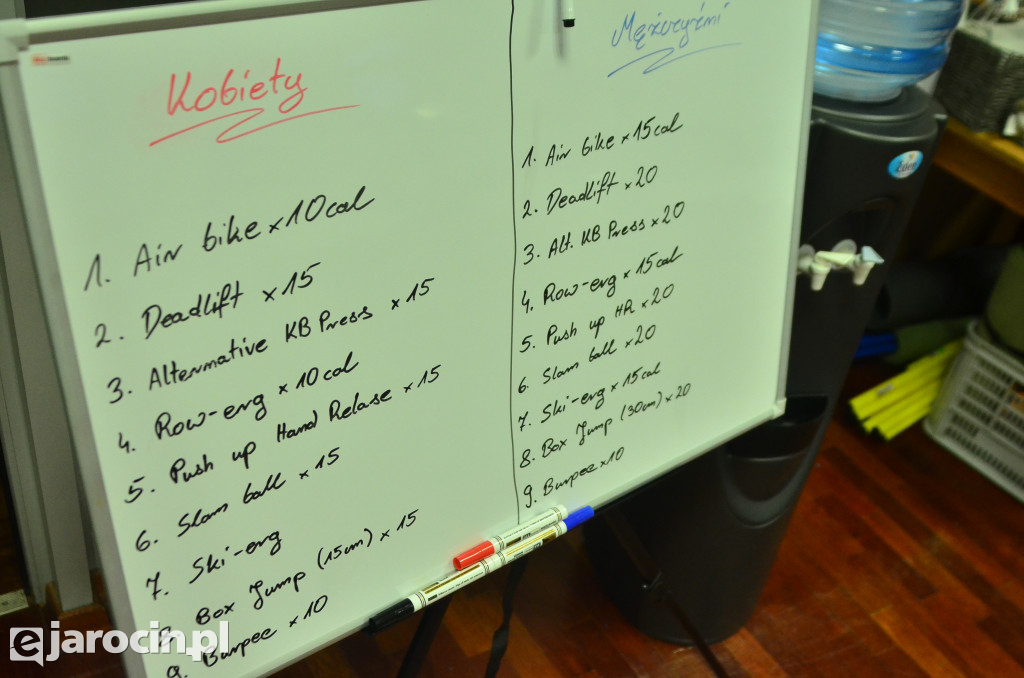 Kobiety
1. Air bike x 10 cal
2. Deadlift x 15
3. Alternmative KB Press x 15
4. Row-erg x 10 cal
5. Push up Hand Relase x 15
6. Slam ball x 15
7. Ski-erg
8. Box Jump (15cm) x 15
9. Burpee x 10
Mężczyźni
1. Air bike x 15 cal
2. Deadlift x 20
3. Alt. KB Press x 20
4. Row-erg x 15 cal
5. Push up HR x 20
6. Slam ball x 20
7. Ski-erg x 15 cal
8. Box Jump (30cm) x 20
9. Burpee x 10
ejarocin.pl